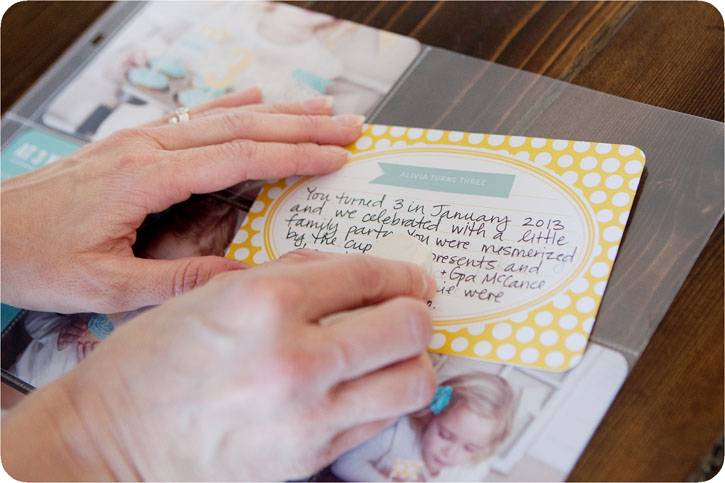 AT 3 
ALIVIA TURNS THREE
You turned 3 in January 2013
and we celebrated with a little
family party. You were mesmerized
by, the cup presents and
+ Gpa McCance
were